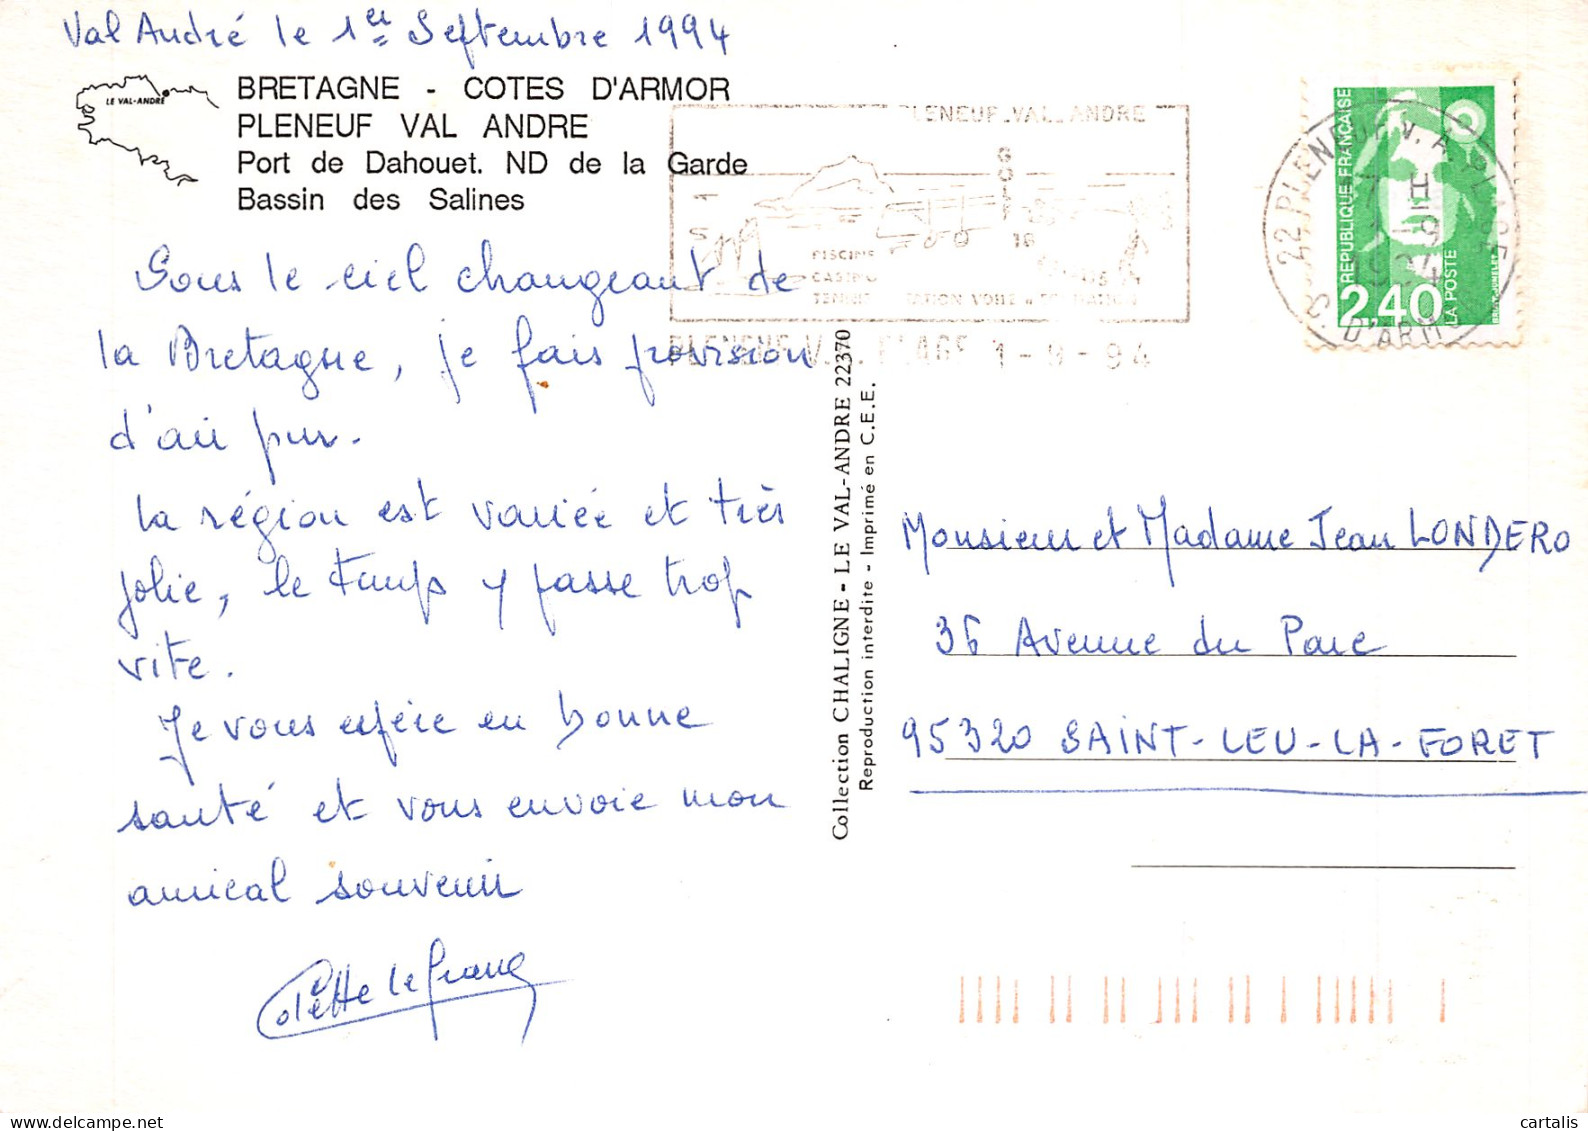 Val André le 1er Septembre 1994
LE VAL-ANDRE
BRETAGNE - COTES D'ARMOR
PLENEUF VAL ANDRE
Port de Dahouet. ND de la Garde
Bassin des Salines
Sous le ciel changeant de
la Bretagne, je fais provision
d'air pur.
La région est variée et très
jolie, le temps y passe trop
vite.
Je vous espère en bonne
santé et vous envoie mon
amical souvenir
Colette Lefranc
PLENEUF_VAL_ANDRE
GOLF
18
PISCINE
CASINO
TENNIS
1-9-94
Collection CHALIGNE - LE VAL-ANDRE 22370
Reproduction interdite - Imprimé en C.E.E.
REPUBLIQUE FRANÇAISE
2,40
LA POSTE
22 PLENEUF V. A. PLAGE
C. D'ARM
1994
Monsieur et Madame Jean LONDERO
36 Avenue du Parc
95320 SAINT-LEU-LA-FORET
cartalis